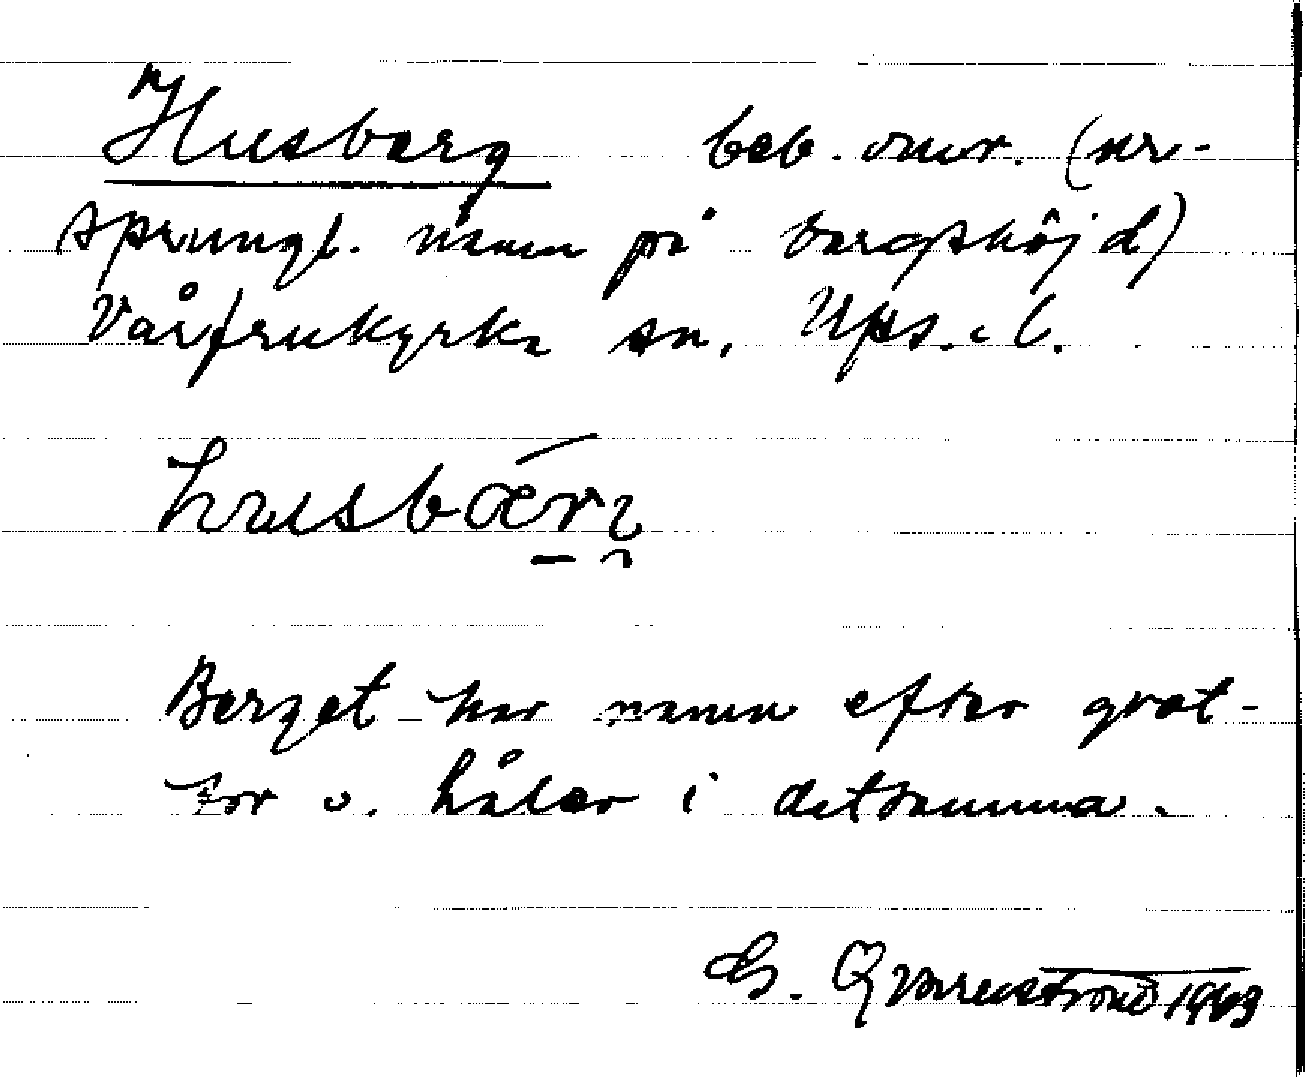 Husberg beb. omr. (ur-
sprungl. namn på bergshöjd)
Vårfrukyrka sn. Ups. l.
Berget har namn efter grot-
tor o. hålor i detsamma.
G. Qvarnström 1963